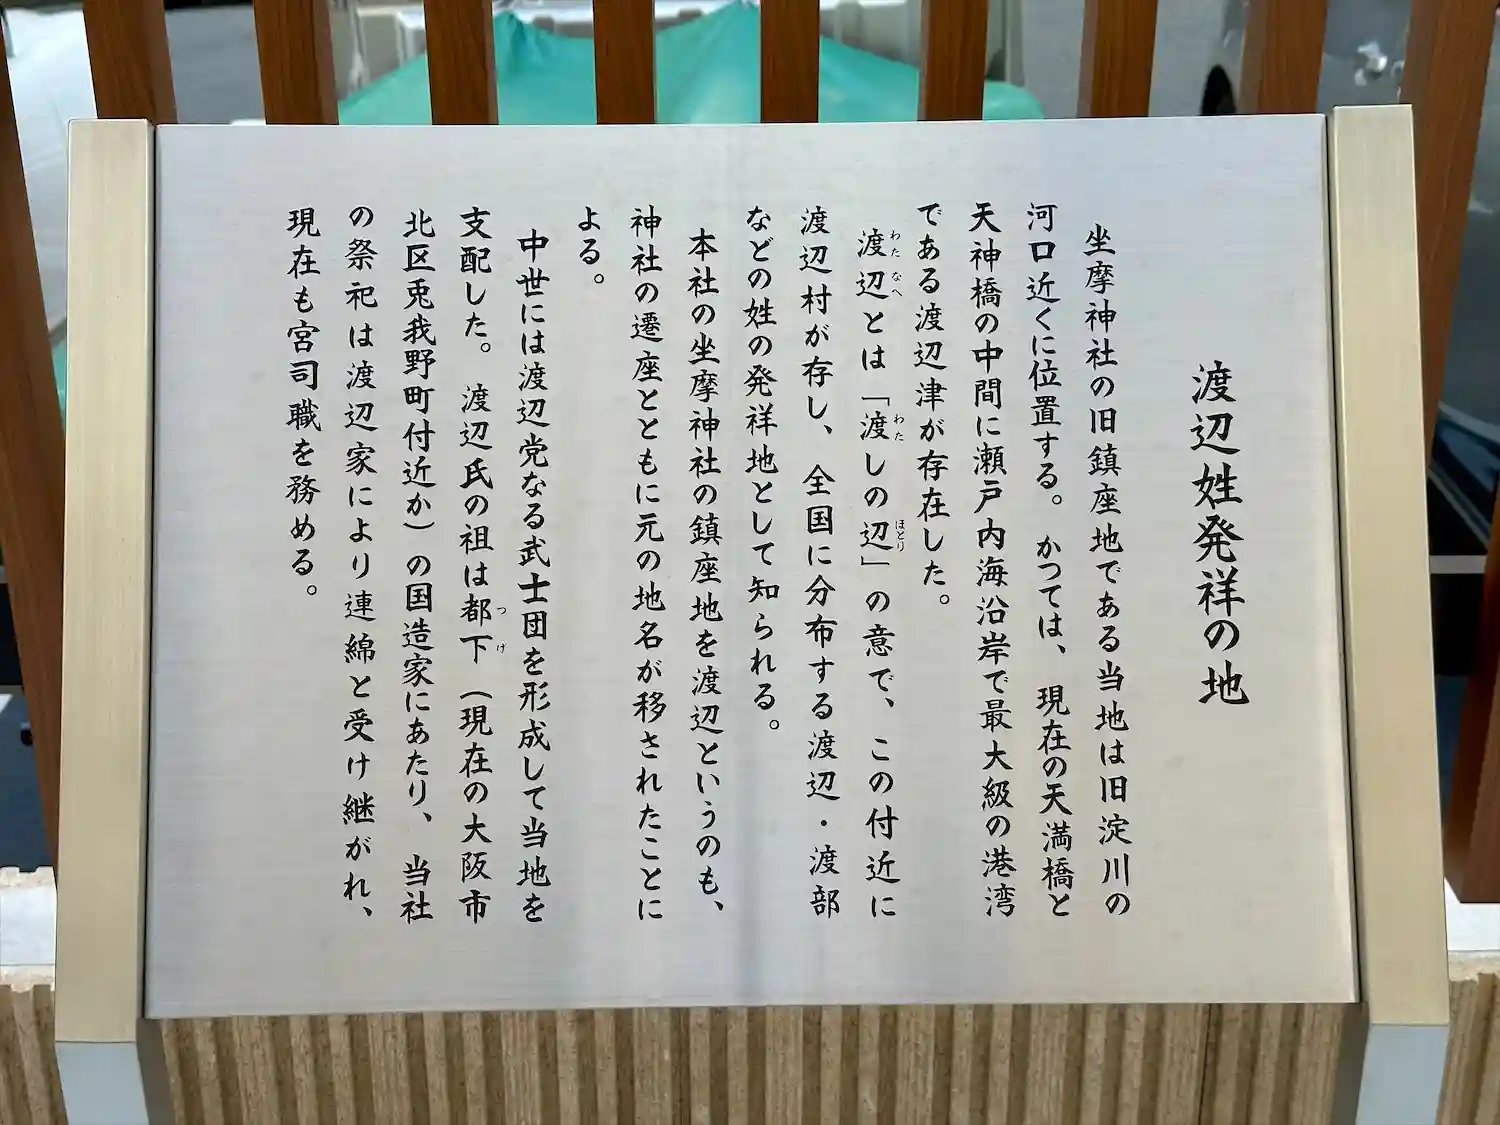 渡辺姓発祥の地
坐摩神社の旧鎮座地である当地は旧淀川の
河口近くに位置する。かつては、現在の天満橋と
天神橋の中間に瀬戸内海沿岸で最大級の港湾
である渡辺津が存在した。
渡辺とは「渡しの辺」の意で、この付近に
渡辺村が存し、全国に分布する渡辺・渡部
などの姓の発祥地として知られる。
本社の坐摩神社の鎮座地を渡辺というのも、
神社の遷座とともに元の地名が移されたことに
よる。
中世には渡辺党なる武士団を形成して当地を
支配した。渡辺氏の祖は都下（現在の大阪市
北区兎我野町付近か）の国造家にあたり、当社
の祭祀は渡辺家により連綿と受け継がれ、
現在も宮司職を務める。
わたなべ
わた
ほとり
つげ